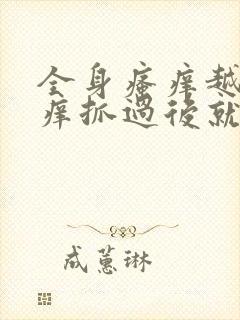 全身瘙痒越
痒抓过后就
成蕙琳